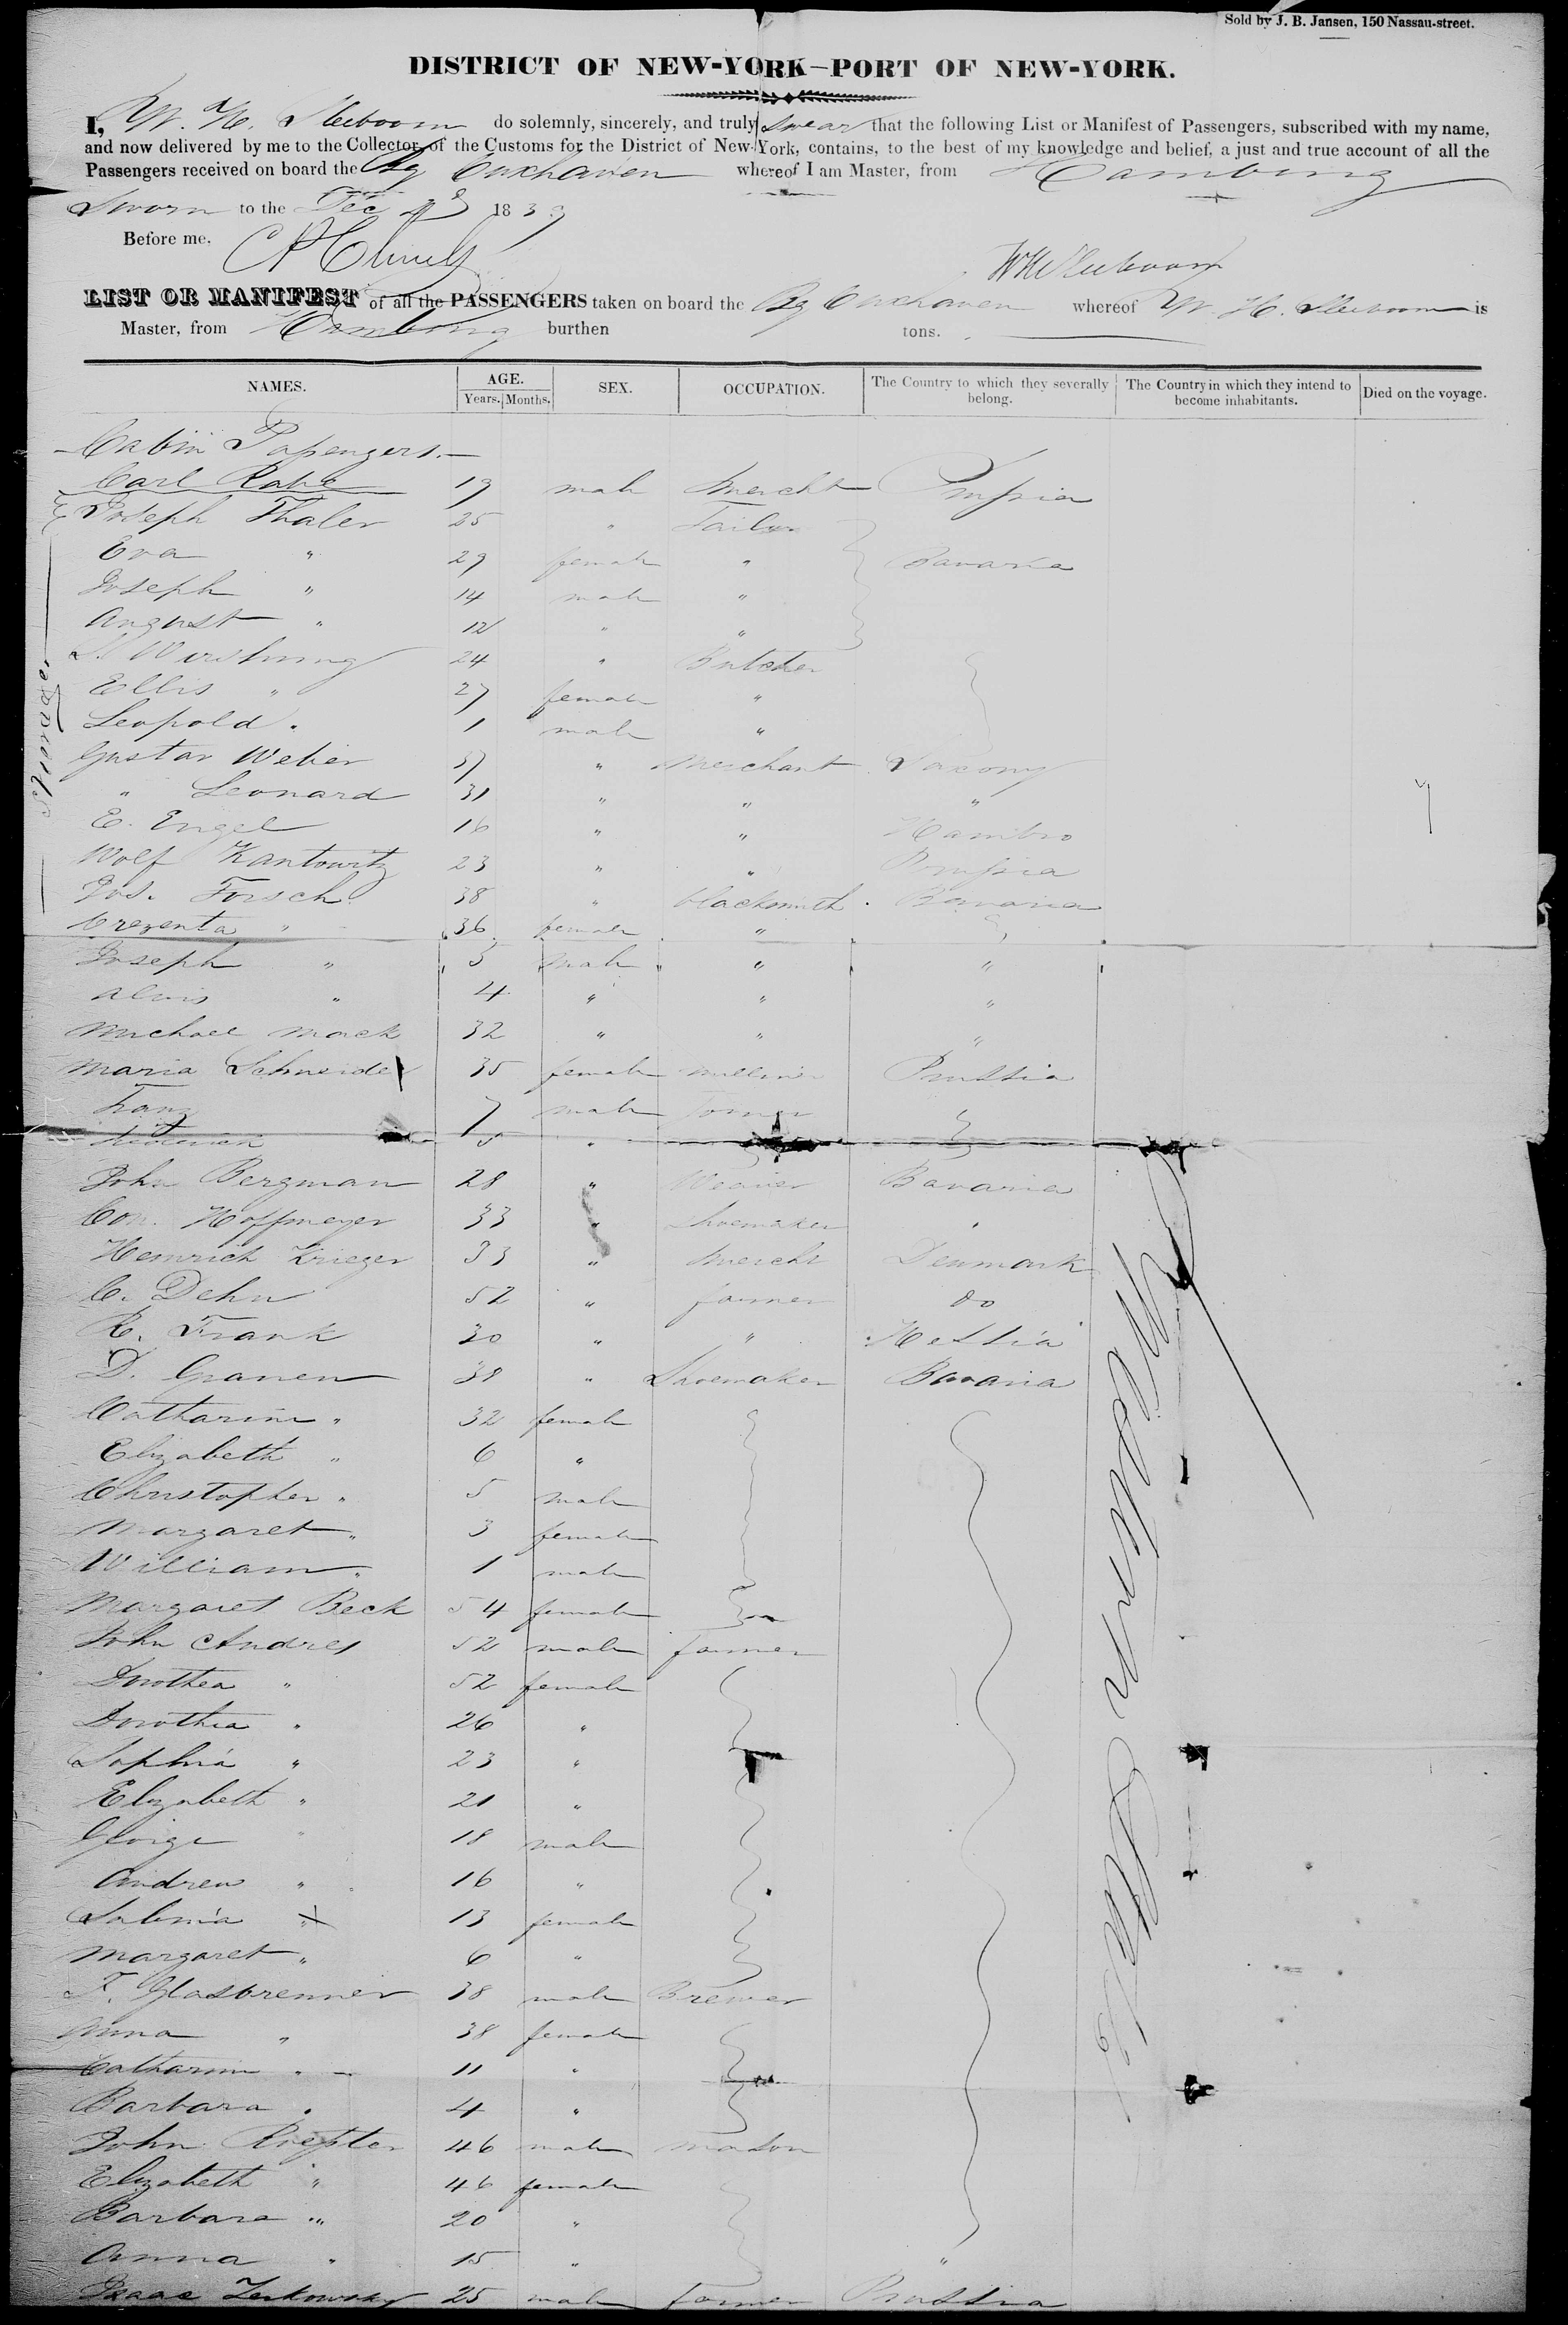 Sold by J. B. Jansen, 150 Nassau-street.
DISTRICT OF NEW-YORK—PORT OF NEW-YORK.
I, W. H. Sleeboom do solemnly, sincerely, and truly swear that the following List or Manifest of Passengers, subscribed with my name,
and now delivered by me to the Collector of the Customs for the District of New-York, contains, to the best of my knowledge and belief, a just and true account of all the
Passengers received on board the Bg Cuxhaven whereof I am Master, from Hamburg
Sworn to the Dec 1839
Before me,
WHSleeboom
LIST OR MANIFEST of all the PASSENGERS taken on board the Bg Cuxhaven whereof W. H. Sleeboom is
Master, from Hamburg burthen tons.
NAMES. AGE. SEX. OCCUPATION. The Country to which they severally belong. The Country in which they intend to become inhabitants. Died on the voyage.
Years. Months.
Cabin Passengers.
Carl Rabe 19 male Mercht Prussia
Joseph Thaler 25 " Tailor
Eva " 29 female " Bavaria
Joseph " 14 male "
August " 12 " "
24 " Butcher
Ellis " 27 female "
Leopold " 1 male "
Gustav Weber 37 " Merchant Saxony
" Leonard 31 " " "
E. Engel 16 " " Hambro
Wolf Kantowitz 23 " " Prussia
Jos. Forsch 38 " blacksmith Bavaria
Crezenta " 36 female "
Joseph " 5 male " "
Alois " 4 " " "
Michael Mack 32 " " "
Maria Schneider 35 female milliner Prussia
Franz 7 male
5 "
John Bergman 28 " Weaver Bavaria
Con. Hoffmeyer 33 " Shoemaker "
Heinrich Krieger 33 " Mercht Denmark
C. Dehn 52 " farmer do
R. Frank 30 " " Hessia
D. Granen 38 " Shoemaker Bavaria
Catharine " 32 female
Elizabeth " 6 "
Christopher " 5 male
Margaret " 3 female
William " 1 male
Margaret Beck 54 female
John Andres 52 male farmer
Dorothea " 52 female
Dorothea " 26 "
Sophia " 23 "
Elizabeth " 21 "
George " 18 male
Andrew " 16 "
Sabina " 13 female
Margaret " 6 "
F. Glasbrenner 38 male Brewer
Anna " 38 female
Catharine " 11 "
Barbara " 4 "
John Roessler 46 male mason
Elizabeth " 46 female
Barbara " 20 "
Anna " 15 " "
Isaac Zerkowsky 25 male farmer Prussia
Steerage